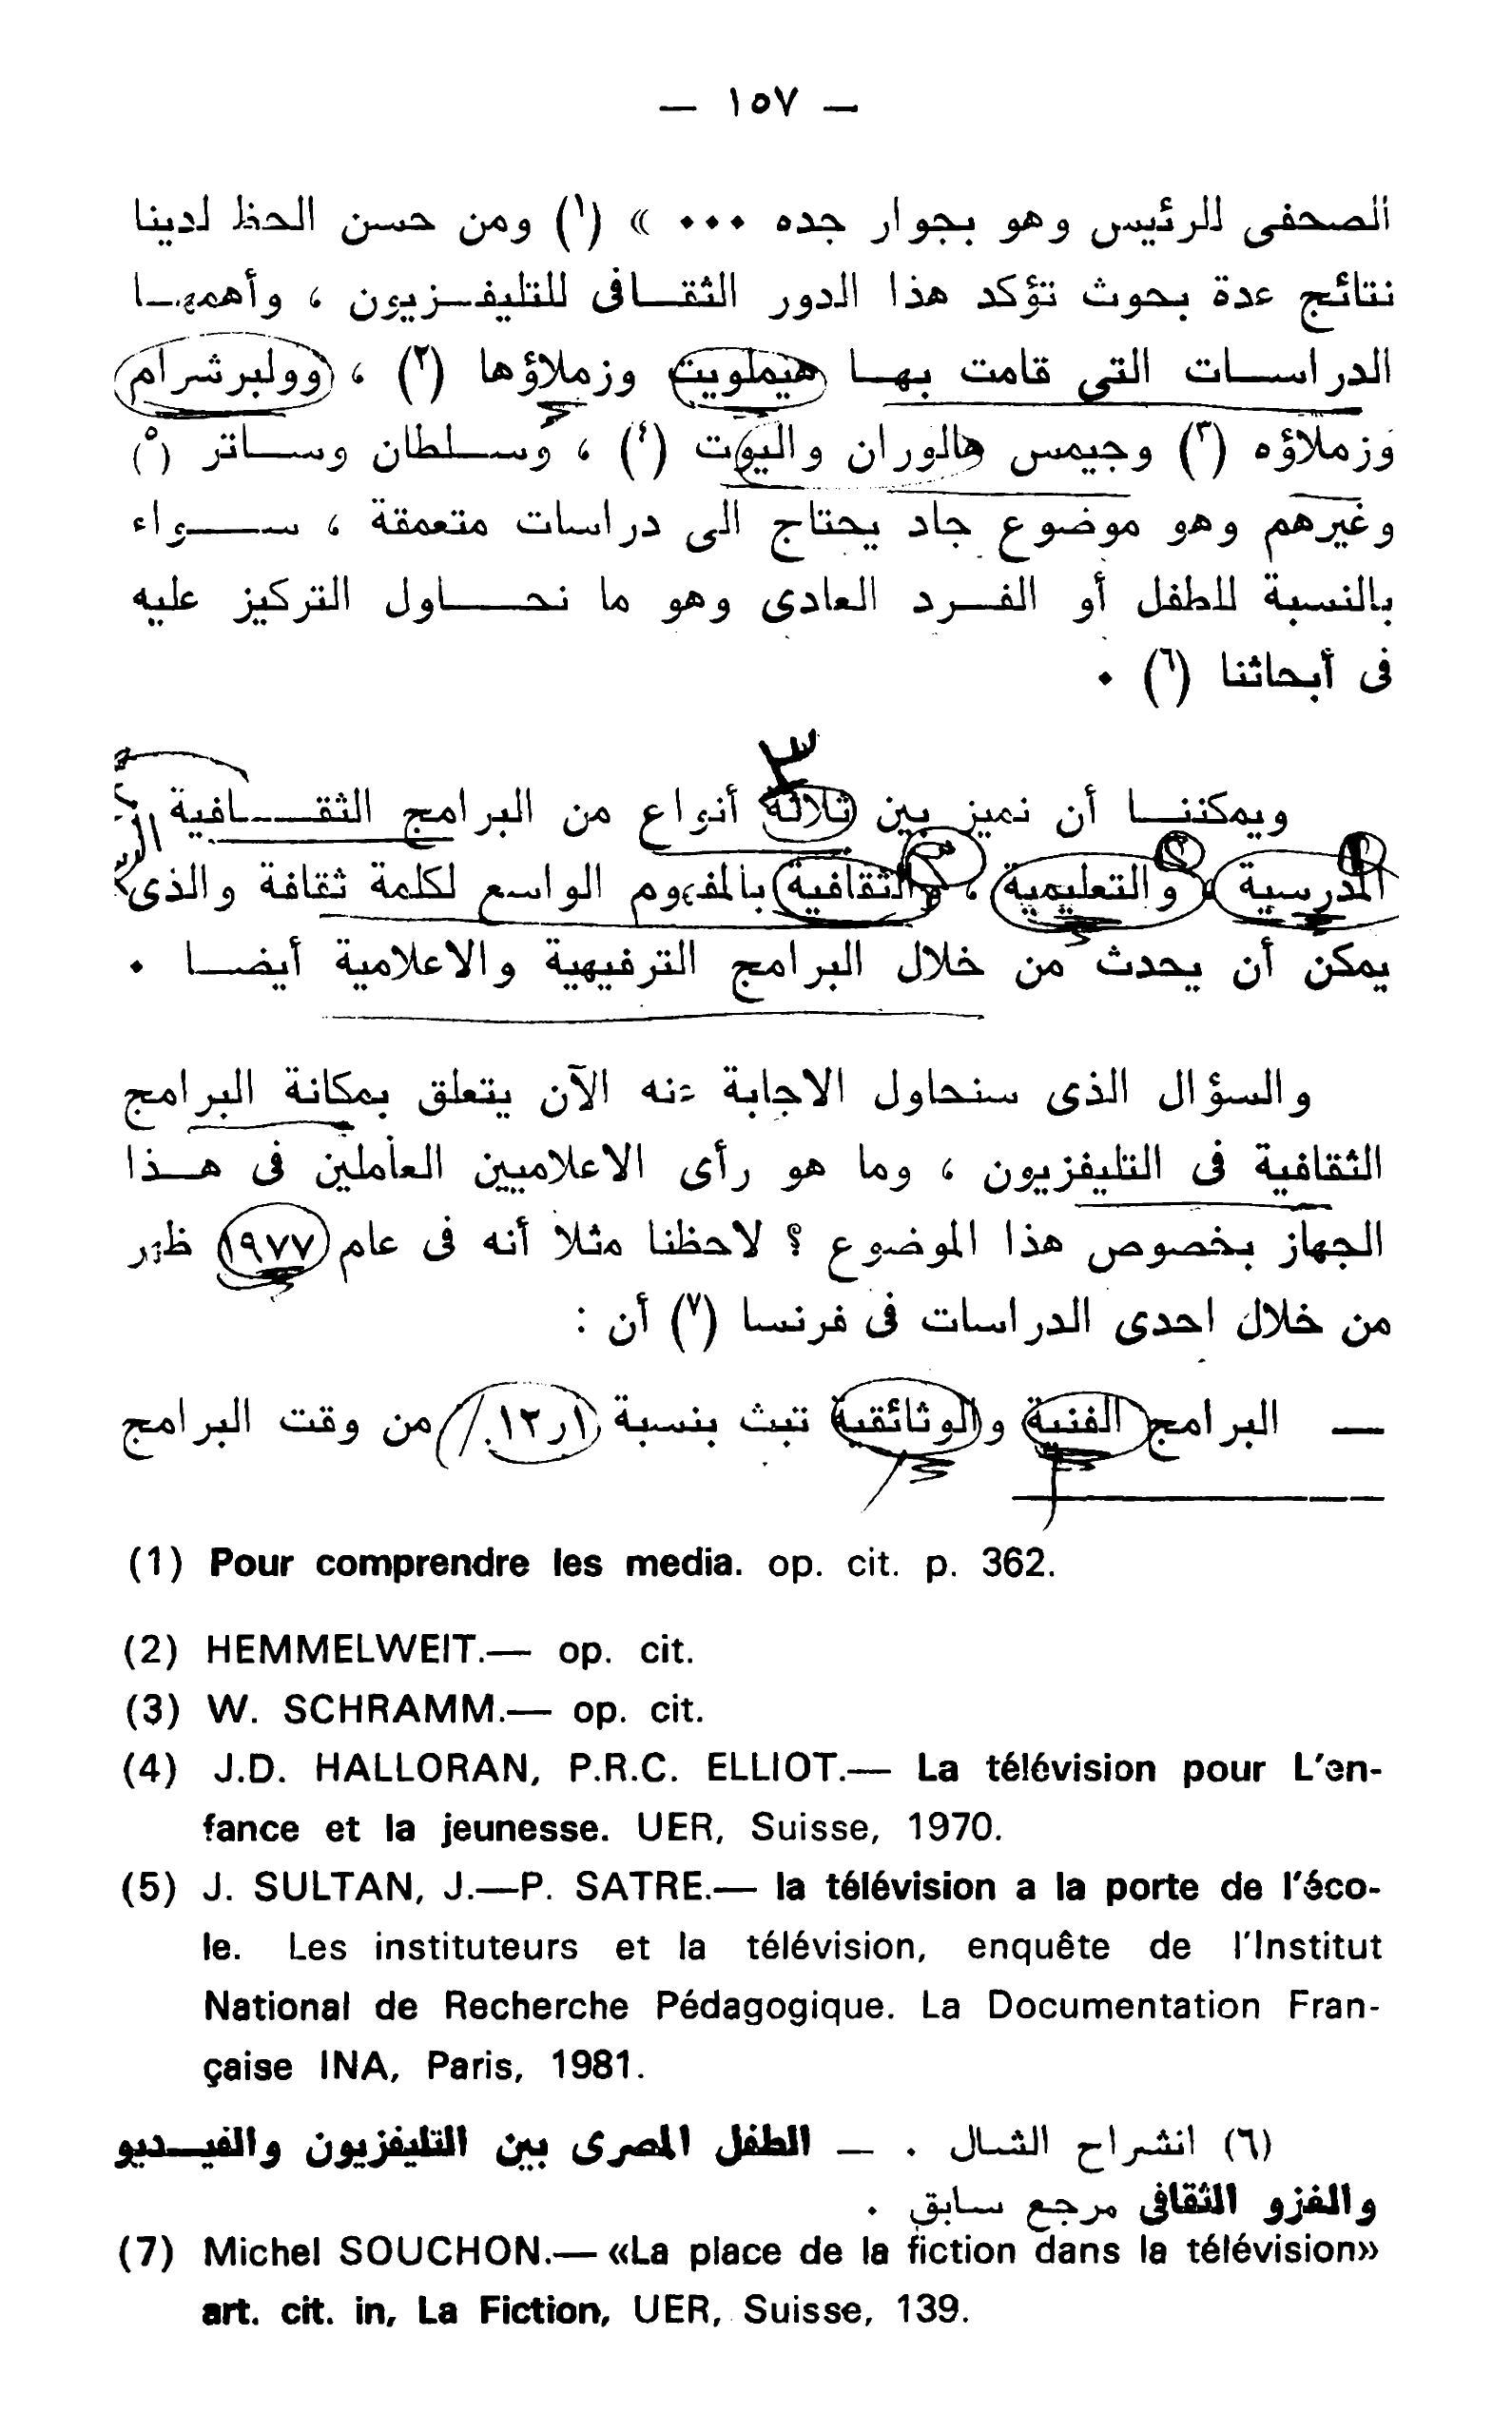 — ١٥٧ —
الصحفى للرئيس وهو بجوار جده ٠٠٠ » (١) ومن حسن الحظ لدينا
نتائج عدة بحوث تؤكد هذا الدور الثقافى للتليفزيون ، وأهمها
الدراسات التى قامت بها هيملويت وزملاؤها (٢) ، وولبرشرام
وزملاؤه (٣) وجيمس هالوران واليوت (٤) ، وسلطان وساتر (٥)
وغيرهم وهو موضوع جاد يحتاج الى دراسات متعمقة ، سواء
بالنسبة للطفل أو الفرد العادى وهو ما نحاول التركيز عليه
فى أبحاثنا (٦) ٠
٣
ويمكننا أن نميز بين ثلاثة أنواع من البرامج الثقافية
المدرسية ، والتعليمية ، والثقافية بالمفهوم الواسع لكلمة ثقافة والذى
يمكن أن يحدث من خلال البرامج الترفيهية والاعلامية أيضا ٠
والسؤال الذى سنحاول الاجابة عنه الآن يتعلق بمكانة البرامج
الثقافية فى التليفزيون ، وما هو رأى الاعلاميين العاملين فى هذا
الجهاز بخصوص هذا الموضوع ؟ لاحظنا مثلا أنه فى عام ١٩٧٧ ظهر
من خلال احدى الدراسات فى فرنسا (٧) أن :
— البرامج الفنية والوثائقية تبث بنسبة ١ر١٢٪ من وقت البرامج
(1) Pour comprendre les media. op. cit. p. 362.
(2) HEMMELWEIT.— op. cit.
(3) W. SCHRAMM.— op. cit.
(4) J.D. HALLORAN, P.R.C. ELLIOT.— La télévision pour L'en-
fance et la jeunesse. UER, Suisse, 1970.
(5) J. SULTAN, J.—P. SATRE.— la télévision a la porte de l'éco-
le. Les instituteurs et la télévision, enquête de l'Institut
National de Recherche Pédagogique. La Documentation Fran-
çaise INA, Paris, 1981.
(٦) انشراح الشال . — الطفل المصرى بين التليفزيون والفيديو
والغزو الثقافى مرجع سابق .
(7) Michel SOUCHON.— «La place de la fiction dans la télévision»
art. cit. in, La Fiction, UER, Suisse, 139.